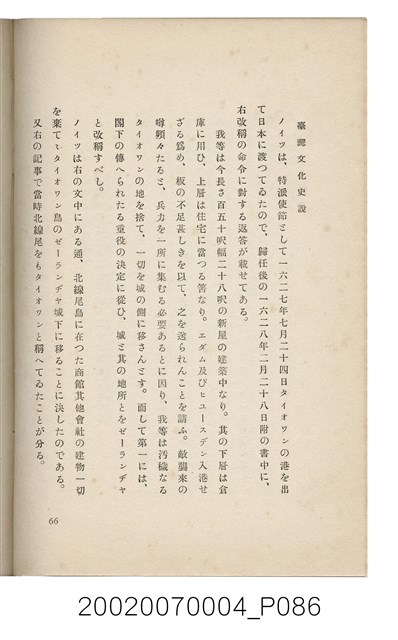 臺灣文化史說
ノイツは、特派使節として一六二七年七月二十四日タイオワンの港を出
て日本に渡つてゐたので、歸任後の一六二八年二月二十八日附の書中に、
右改稱の命令に對する返答が載せてある。
我等は今長さ百五十呎幅二十八呎の新屋の建築中なり。其の下層は倉
庫に用ひ、上層は住宅に當つる筈なり。エダム及びヒユースデン入港せ
ざる爲め、板の不足甚しきを以て、之を送られんことを請ふ。敵襲來の
噂頻々たると、兵力を一所に集むる必要あるとに因り、我等は汚穢なる
タイオワンの地を捨て、一切を城の側に移さんとす。而して第一には、
閣下の傳へられたる重役の決定に從ひ、城と其の地所とをゼーランヂヤ
と改稱すべし。
ノイツは右の文中にある通、北線尾島に在つた商館其他會社の建物一切
を棄てゝタイオワン島のゼーランヂヤ城下に移ることに決したのである。
又右の記事で當時北線尾をもタイオワンと稱へてゐたことが分る。
66
20020070004_P086